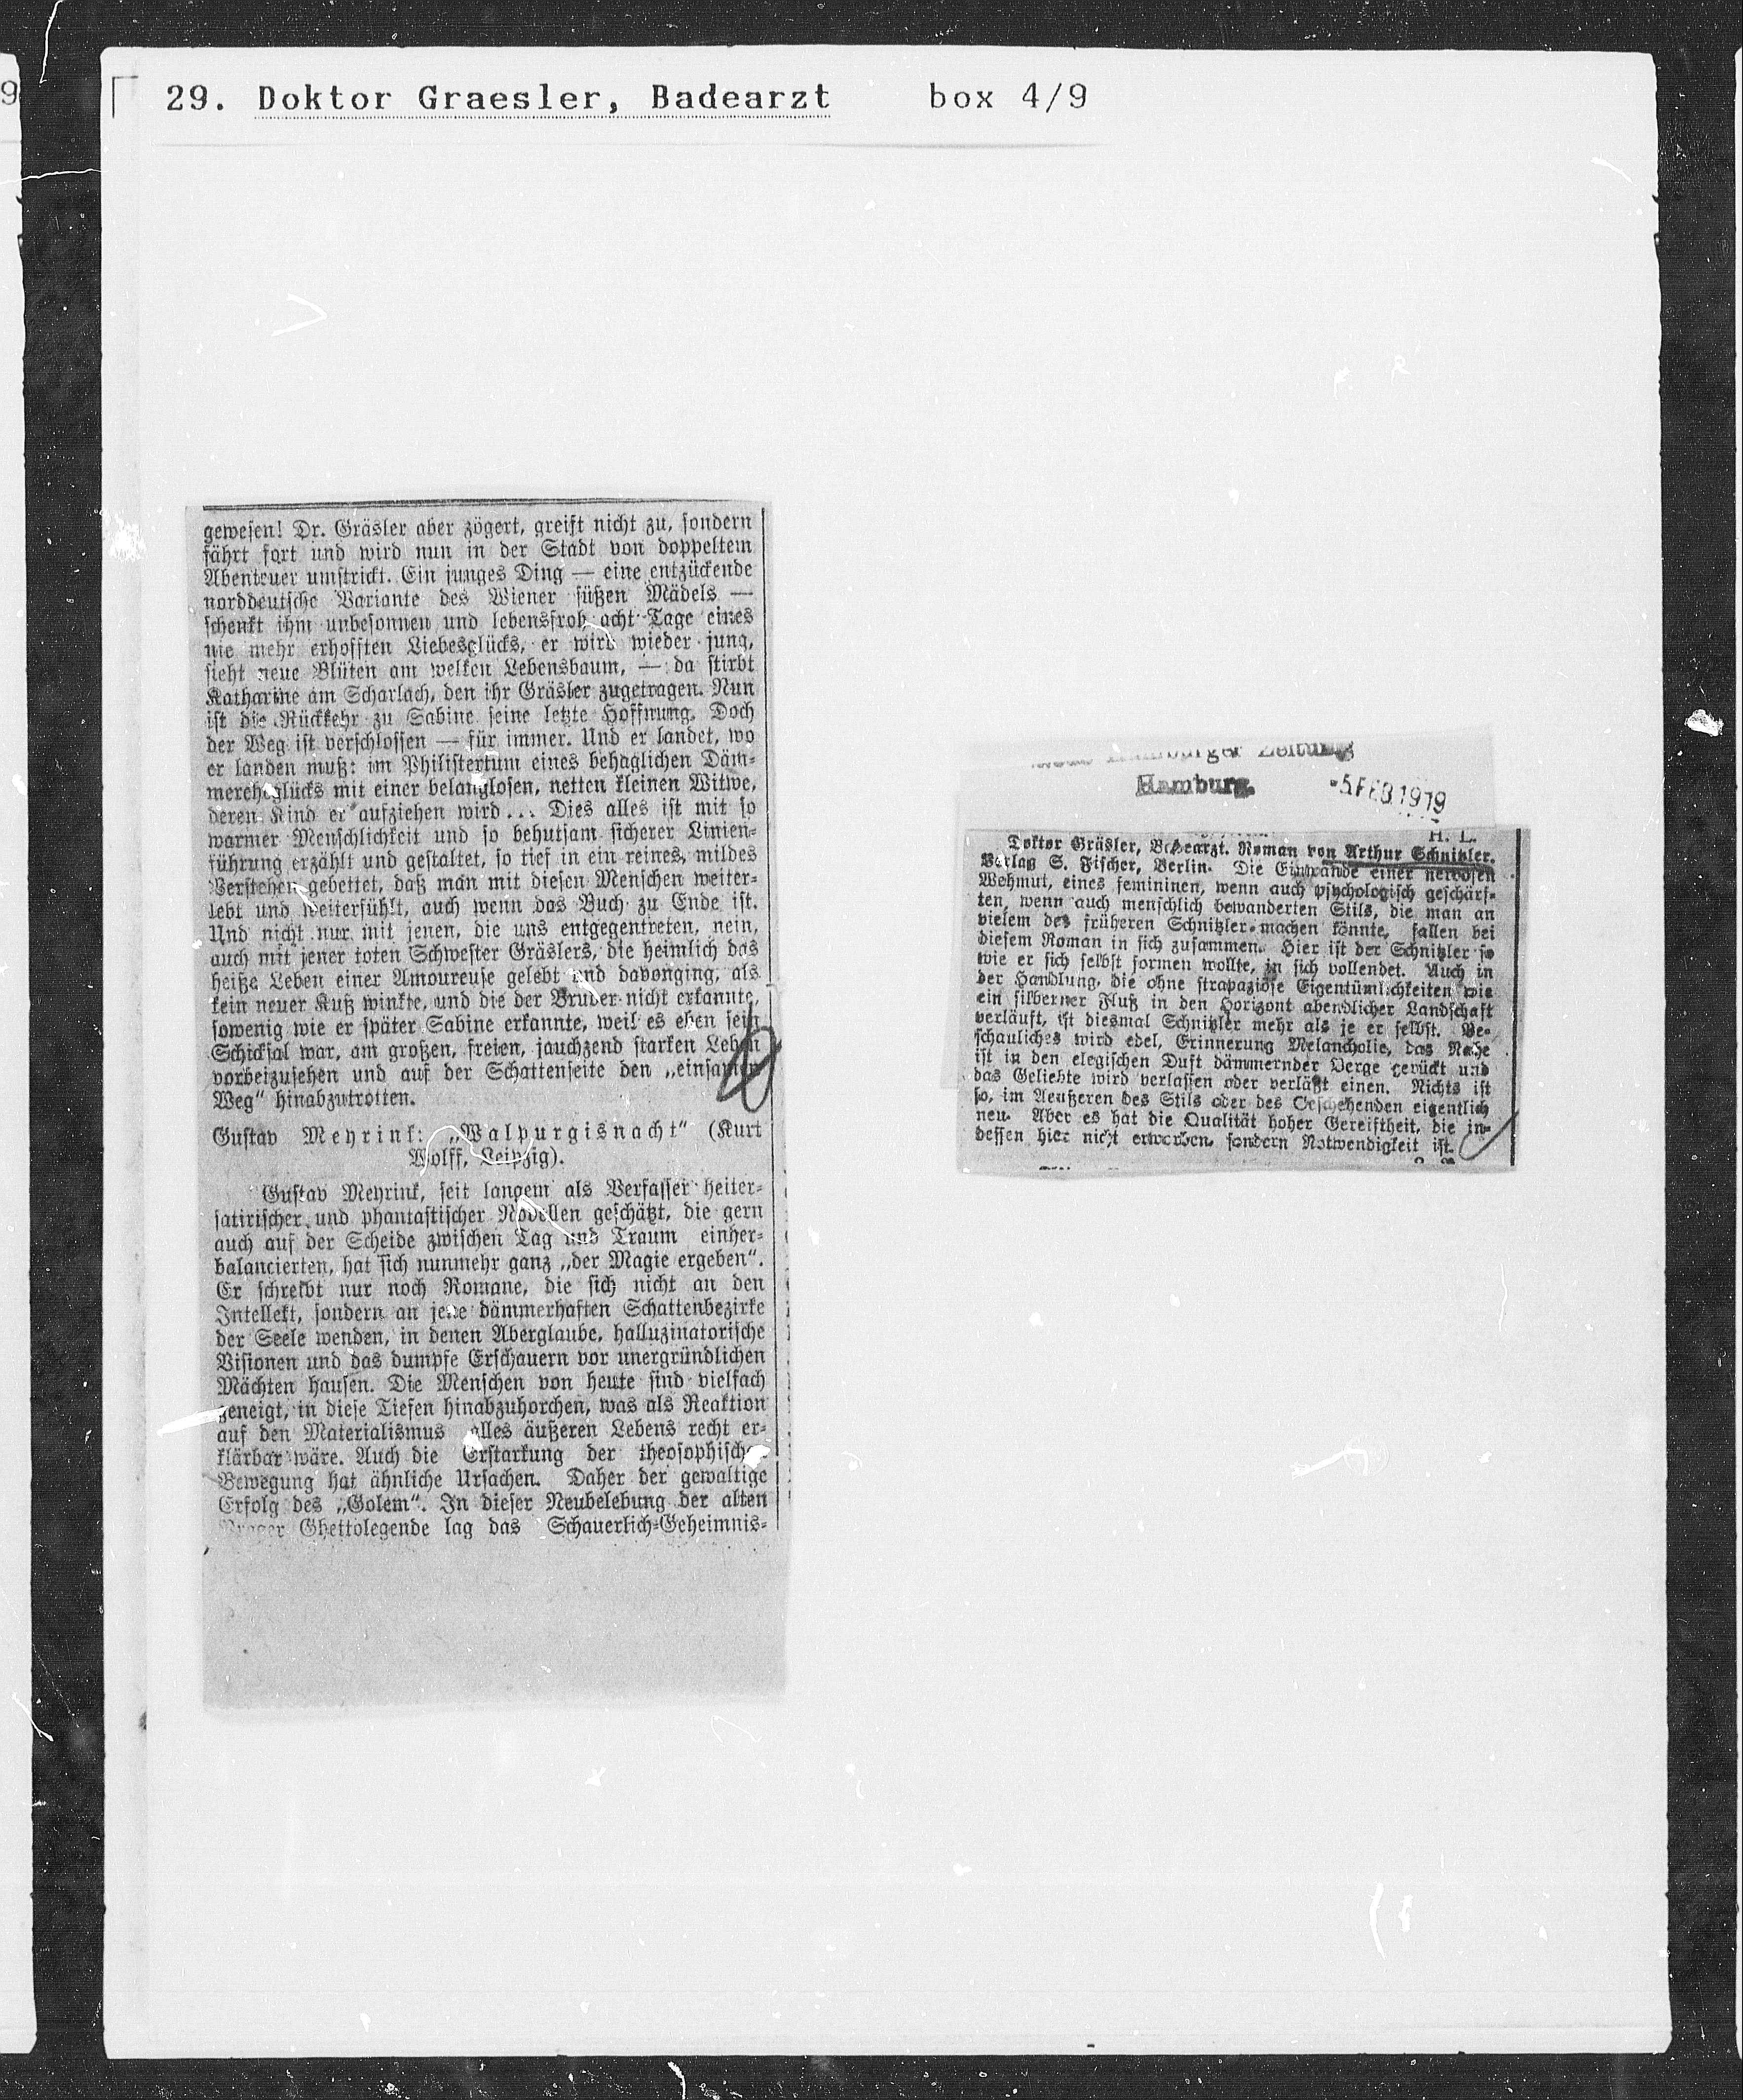 9
29. Doktor Graesler, Badearzt box 4/9
gewesen! Dr. Gräsler aber zögert, greift nicht zu, sondern
fährt fort und wird nun in der Stadt von doppeltem
Abenteuer umstrickt. Ein junges Ding — eine entzückende
norddeutsche Variante des Wiener süßen Mädels —
schenkt ihm unbesonnen und lebensfroh acht Tage eines
nie mehr erhofften Liebesglücks, er wird wieder jung,
sieht neue Blüten am welken Lebensbaum, — da stirbt
Katharine am Scharlach, den ihr Gräsler zugetragen. Nun
ist die Rückkehr zu Sabine seine letzte Hoffnung. Doch
der Weg ist verschlossen — für immer. Und er landet, wo
er landen muß: im Philistertum eines behaglichen Däm-
mereheglücks mit einer belanglosen, netten kleinen Witwe,
deren Kind er aufziehen wird... Dies alles ist mit so
warmer Menschlichkeit und so behutsam sicherer Linien-
führung erzählt und gestaltet, so tief in ein reines, mildes
Verstehen gebettet, daß man mit diesen Menschen weiter-
lebt und weiterfühlt, auch wenn das Buch zu Ende ist.
Und nicht nur mit jenen, die uns entgegentreten, nein,
auch mit jener toten Schwester Gräslers, die heimlich das
heiße Leben einer Amoureuse gelebt und davonging, als
kein neuer Kuß winkte, und die der Bruder nicht erkannte,
sowenig wie er später Sabine erkannte, weil es eben sein
Schicksal war, am großen, freien, jauchzend starken Leben
vorbeizusehen und auf der Schattenseite den „einsamen
Weg“ hinabzutrotten.
Gustav Meyrink: „Walpurgisnacht“ (Kurt
Wolff, Leipzig).
Gustav Meyrink, seit langem als Verfasser heiter-
satirischer und phantastischer Novellen geschätzt, die gern
auch auf der Scheide zwischen Tag und Traum einher-
balancierten, hat sich nunmehr ganz „der Magie ergeben“.
Er schreibt nur noch Romane, die sich nicht an den
Intellekt, sondern an jene dämmerhaften Schattenbezirke
der Seele wenden, in denen Aberglaube, halluzinatorische
Visionen und das dumpfe Erschauern vor unergründlichen
Mächten hausen. Die Menschen von heute sind vielfach
geneigt, in diese Tiefen hinabzuhorchen, was als Reaktion
auf den Materialismus alles äußeren Lebens recht er-
klärbar wäre. Auch die Erstarkung der theosophischen
Bewegung hat ähnliche Ursachen. Daher der gewaltige
Erfolg des „Golem“. In dieser Neubelebung der alten
Prager Ghettolegende lag das Schauerlich-Geheimnis-
Hamburger Zeitung
Hamburg.
-5 FEB 1919
H. L.
Doktor Gräsler, Badearzt. Roman von Arthur Schnitzler.
Verlag S. Fischer, Berlin. Die Einwände einer nervösen
Wehmut, eines femininen, wenn auch psychologisch geschärf-
ten, wenn auch menschlich bewanderten Stils, die man an
vielem des früheren Schnitzler machen könnte, fallen bei
diesem Roman in sich zusammen. Hier ist der Schnitzler so
wie er sich selbst formen wollte, in sich vollendet. Auch in
der Handlung, die ohne strapaziöse Eigentümlichkeiten wie
ein silberner Fluß in den Horizont abendlicher Landschaft
verläuft, ist diesmal Schnitzler mehr als je er selbst. Be-
schauliches wird edel, Erinnerung Melancholie, das Nahe
ist in den elegischen Duft dämmernder Berge gerückt und
das Geliebte wird verlassen oder verläßt einen. Nichts ist
so, im Aeußeren des Stils oder des Geschehenden eigentlich
neu. Aber es hat die Qualität hoher Gereiftheit, die in-
dessen hier nicht erworben, sondern Notwendigkeit ist.